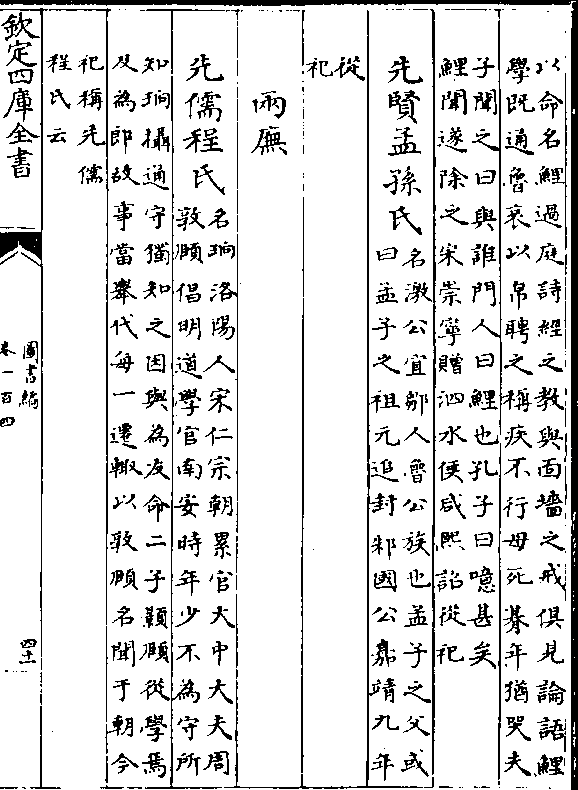 以命名鯉過庭詩經之教與面墻之戒俱見論語鯉
學既通魯哀以帛聘之稱疾不行母死朞年猶哭夫
子聞之曰與誰門人曰鯉也孔子曰噫甚矣
鯉聞遂除之宋崇寧贈泗水侯咸熙詔從祀
先賢孟孫氏
名激公宜鄒人魯公族也孟子之父或
曰孟子之祖元追封邾國公嘉靖九年
從
祀
兩廡
先儒程氏
名珦洛陽人宋仁宗朝累官大中大夫周
敦頤倡明道學官南安時年少不為守所
知珦攝通守獨知之因與為友命二子顥頤從學焉
及為郎故事當舉代每一遷輒以敦頤名聞于朝今
祀稱先儒
程氏云
欽定四庫全書
圖書編
卷一百四